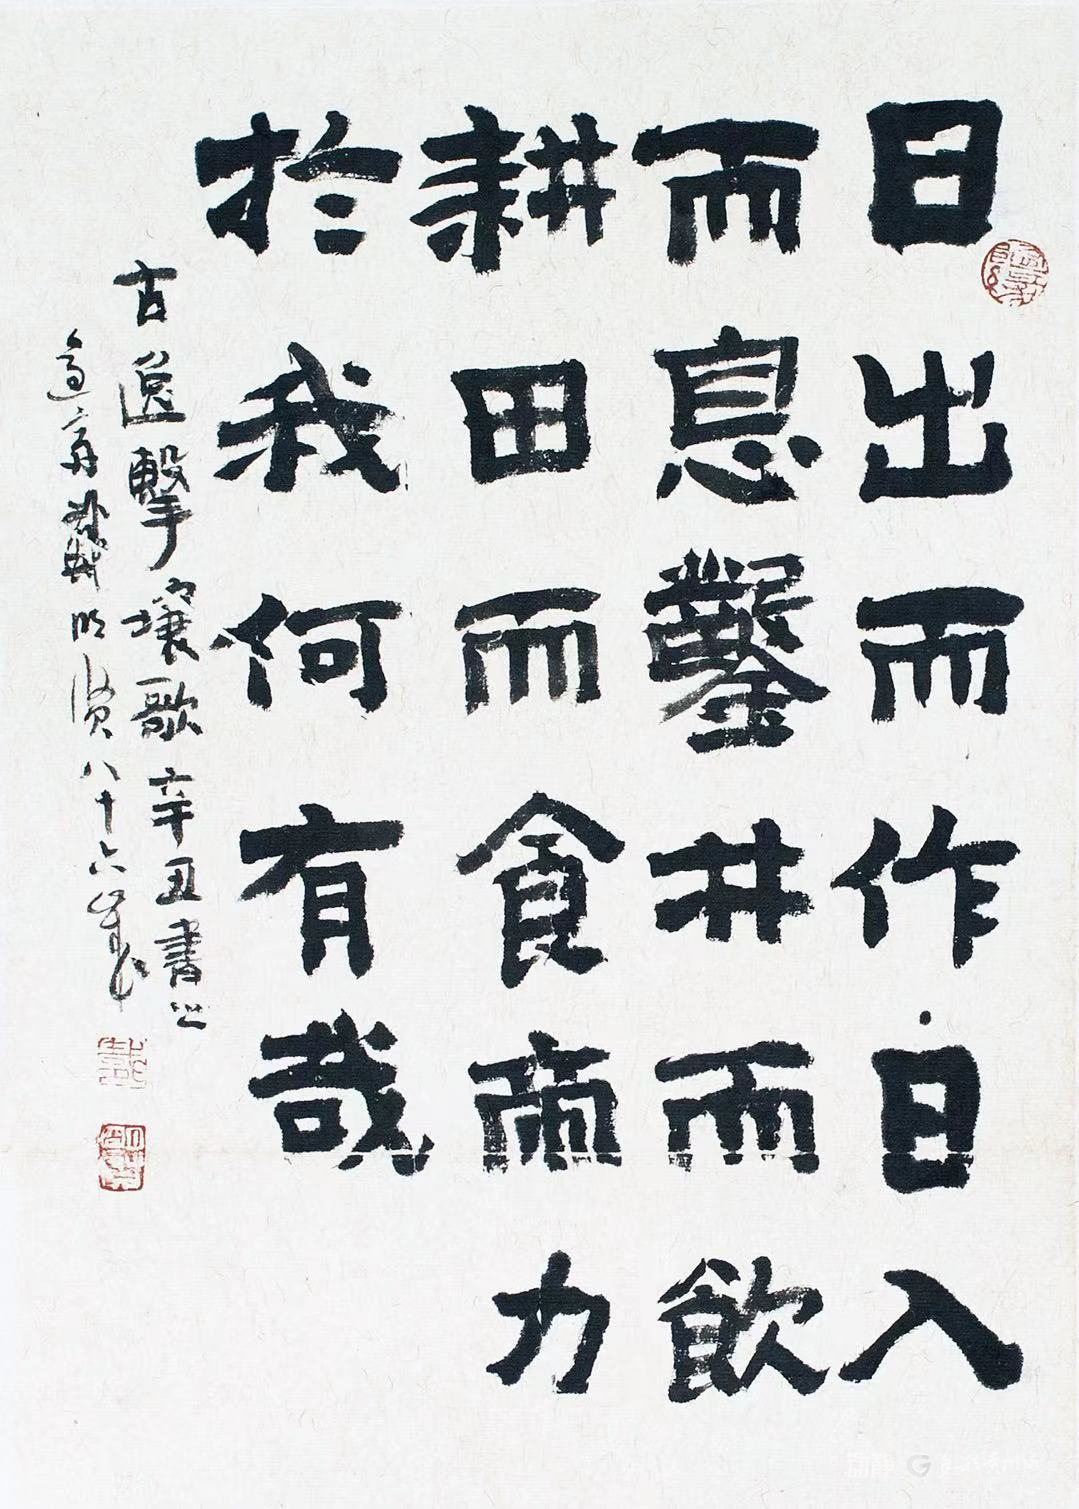 日出而作日入
而息鑿井而飲
耕田而食帝力
於我何有哉
古逸擊壤歌辛丑書之
適齋戴明贤八十六歲